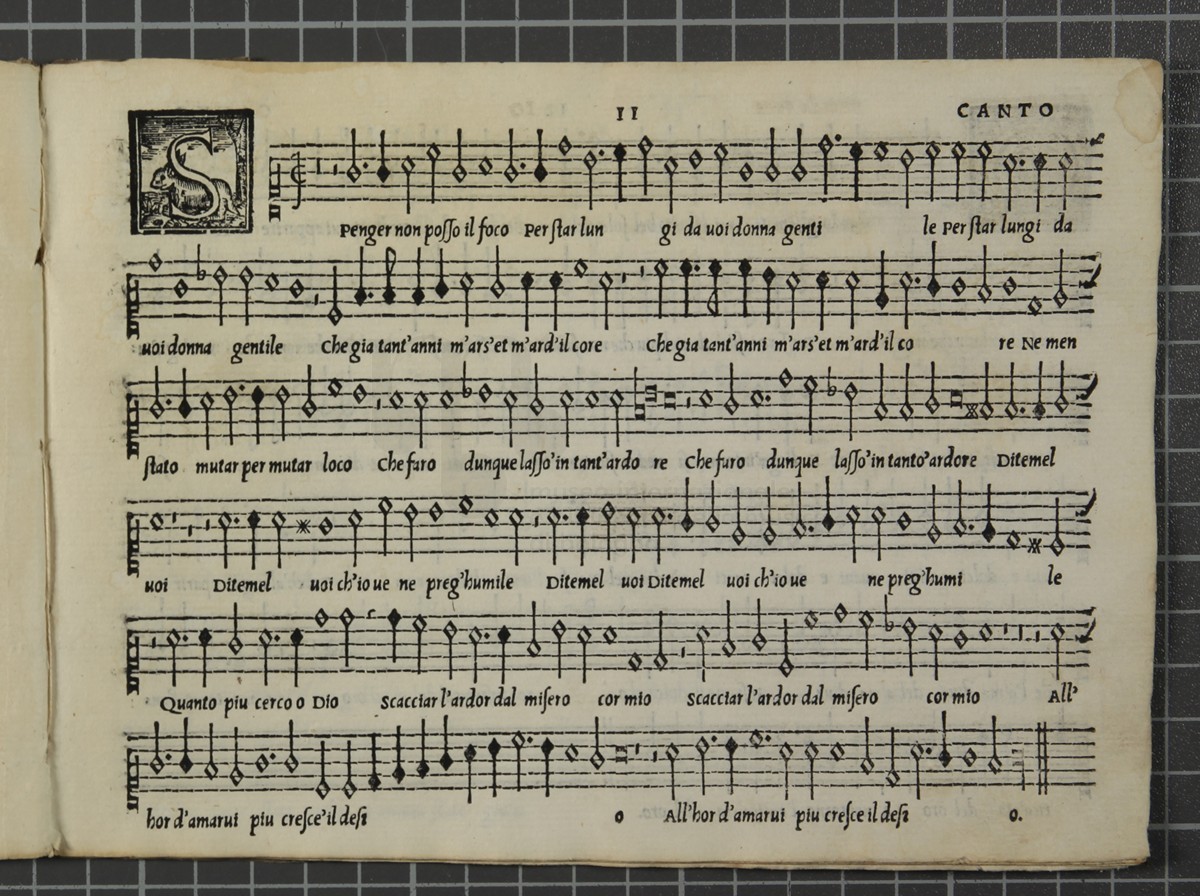 II CANTO
SPenger non posso il foco Per star lun gi da uoi donna genti le Per star lungi da
uoi donna gentile Che gia tant'anni m'ars'et m'ard'il core Che gia tant'anni m'ars'et m'ard'il co re Ne men
stato mutar per mutar loco Che faro dunque lasso'in tant'ardo re Che faro dunque lasso'in tanto'ardore Ditemel
uoi Ditemel uoi ch'io ue ne preg'humile Ditemel uoi Ditemel uoi ch'io ue ne preg'humi le
Quanto piu cerco o Dio Scacciar l'ardor dal misero cor mio Scacciar l'ardor dal misero cor mio All'
hor d'amarui piu cresce'il desi o All'hor d'amarui piu cresce il desi o.